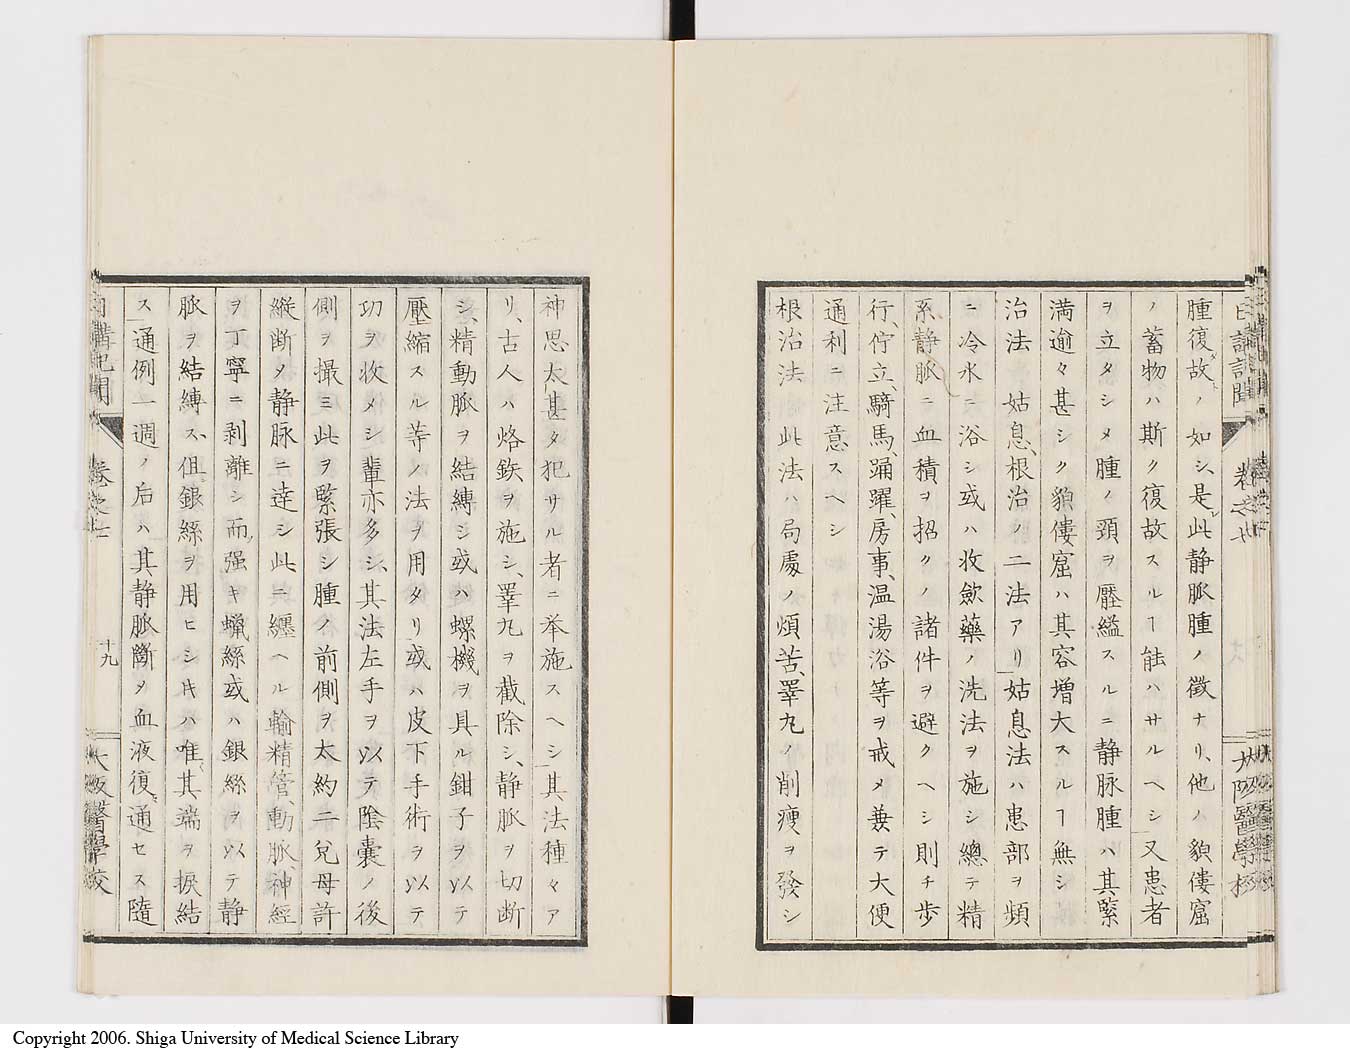 腫復故ノ如シ、是レ此静脈腫ノ徴ナリ、他ノ貌僂窟
ノ蓄物ハ斯ク復故スルヿ能ハサルヘシ又患者
ヲ立タシメ腫ノ頚ヲ壓縊スルニ静脉腫ハ其緊
満逾々甚シク貌僂窟ハ其容増大スルヿ無シ
治法 姑息、根治ノ二法アリ姑息法ハ患部ヲ頻
ニ冷水ニ浴シ或ハ收歛藥ノ洗法ヲ施シ總テ精
系静脈ニ血積ヲ招クノ諸件ヲ避クヘシ則チ歩
行、佇立、騎馬、踊躍、房事、温湯浴等ヲ戒メ兼テ大便
通利ニ注意スヘシ
根治法 此法ハ局處ノ煩苦、睪丸ノ削痩ヲ發シ
神思太甚タ犯サル者ニ挙施スヘシ其法種々ア
リ、古人ハ烙鉄ヲ施シ、睪丸ヲ截除シ、静脈ヲ切断
シ、精動脈ヲ結縛シ或ハ螺機ヲ具ル鉗子ヲ以テ
壓縮スル等ノ法ヲ用タリ或ハ皮下手術ヲ以テ
功ヲ收メシ輩亦多シ、其法左手ヲ以テ陰嚢ノ後
側ヲ撮ミ此ヲ緊張シ腫ノ前側ヲ太約二兒母許
縦断メ静脉ニ達シ此ニ纒ヘル輸精管、動脈、神経
ヲ丁寧ニ剥離シ而强キ蝋絲或ハ銀絲ヲ以テ静
脈ヲ結縛ス、但銀絲ヲ用ヒシ𪜈ハ唯其端ヲ捩結
ス通例一週ノ后ハ其静脈斷メ血液復通セス隨
日講記聞 卷之七 十九 大阪醫學校
Copyright 2006. Shiga University of Medical Science Library